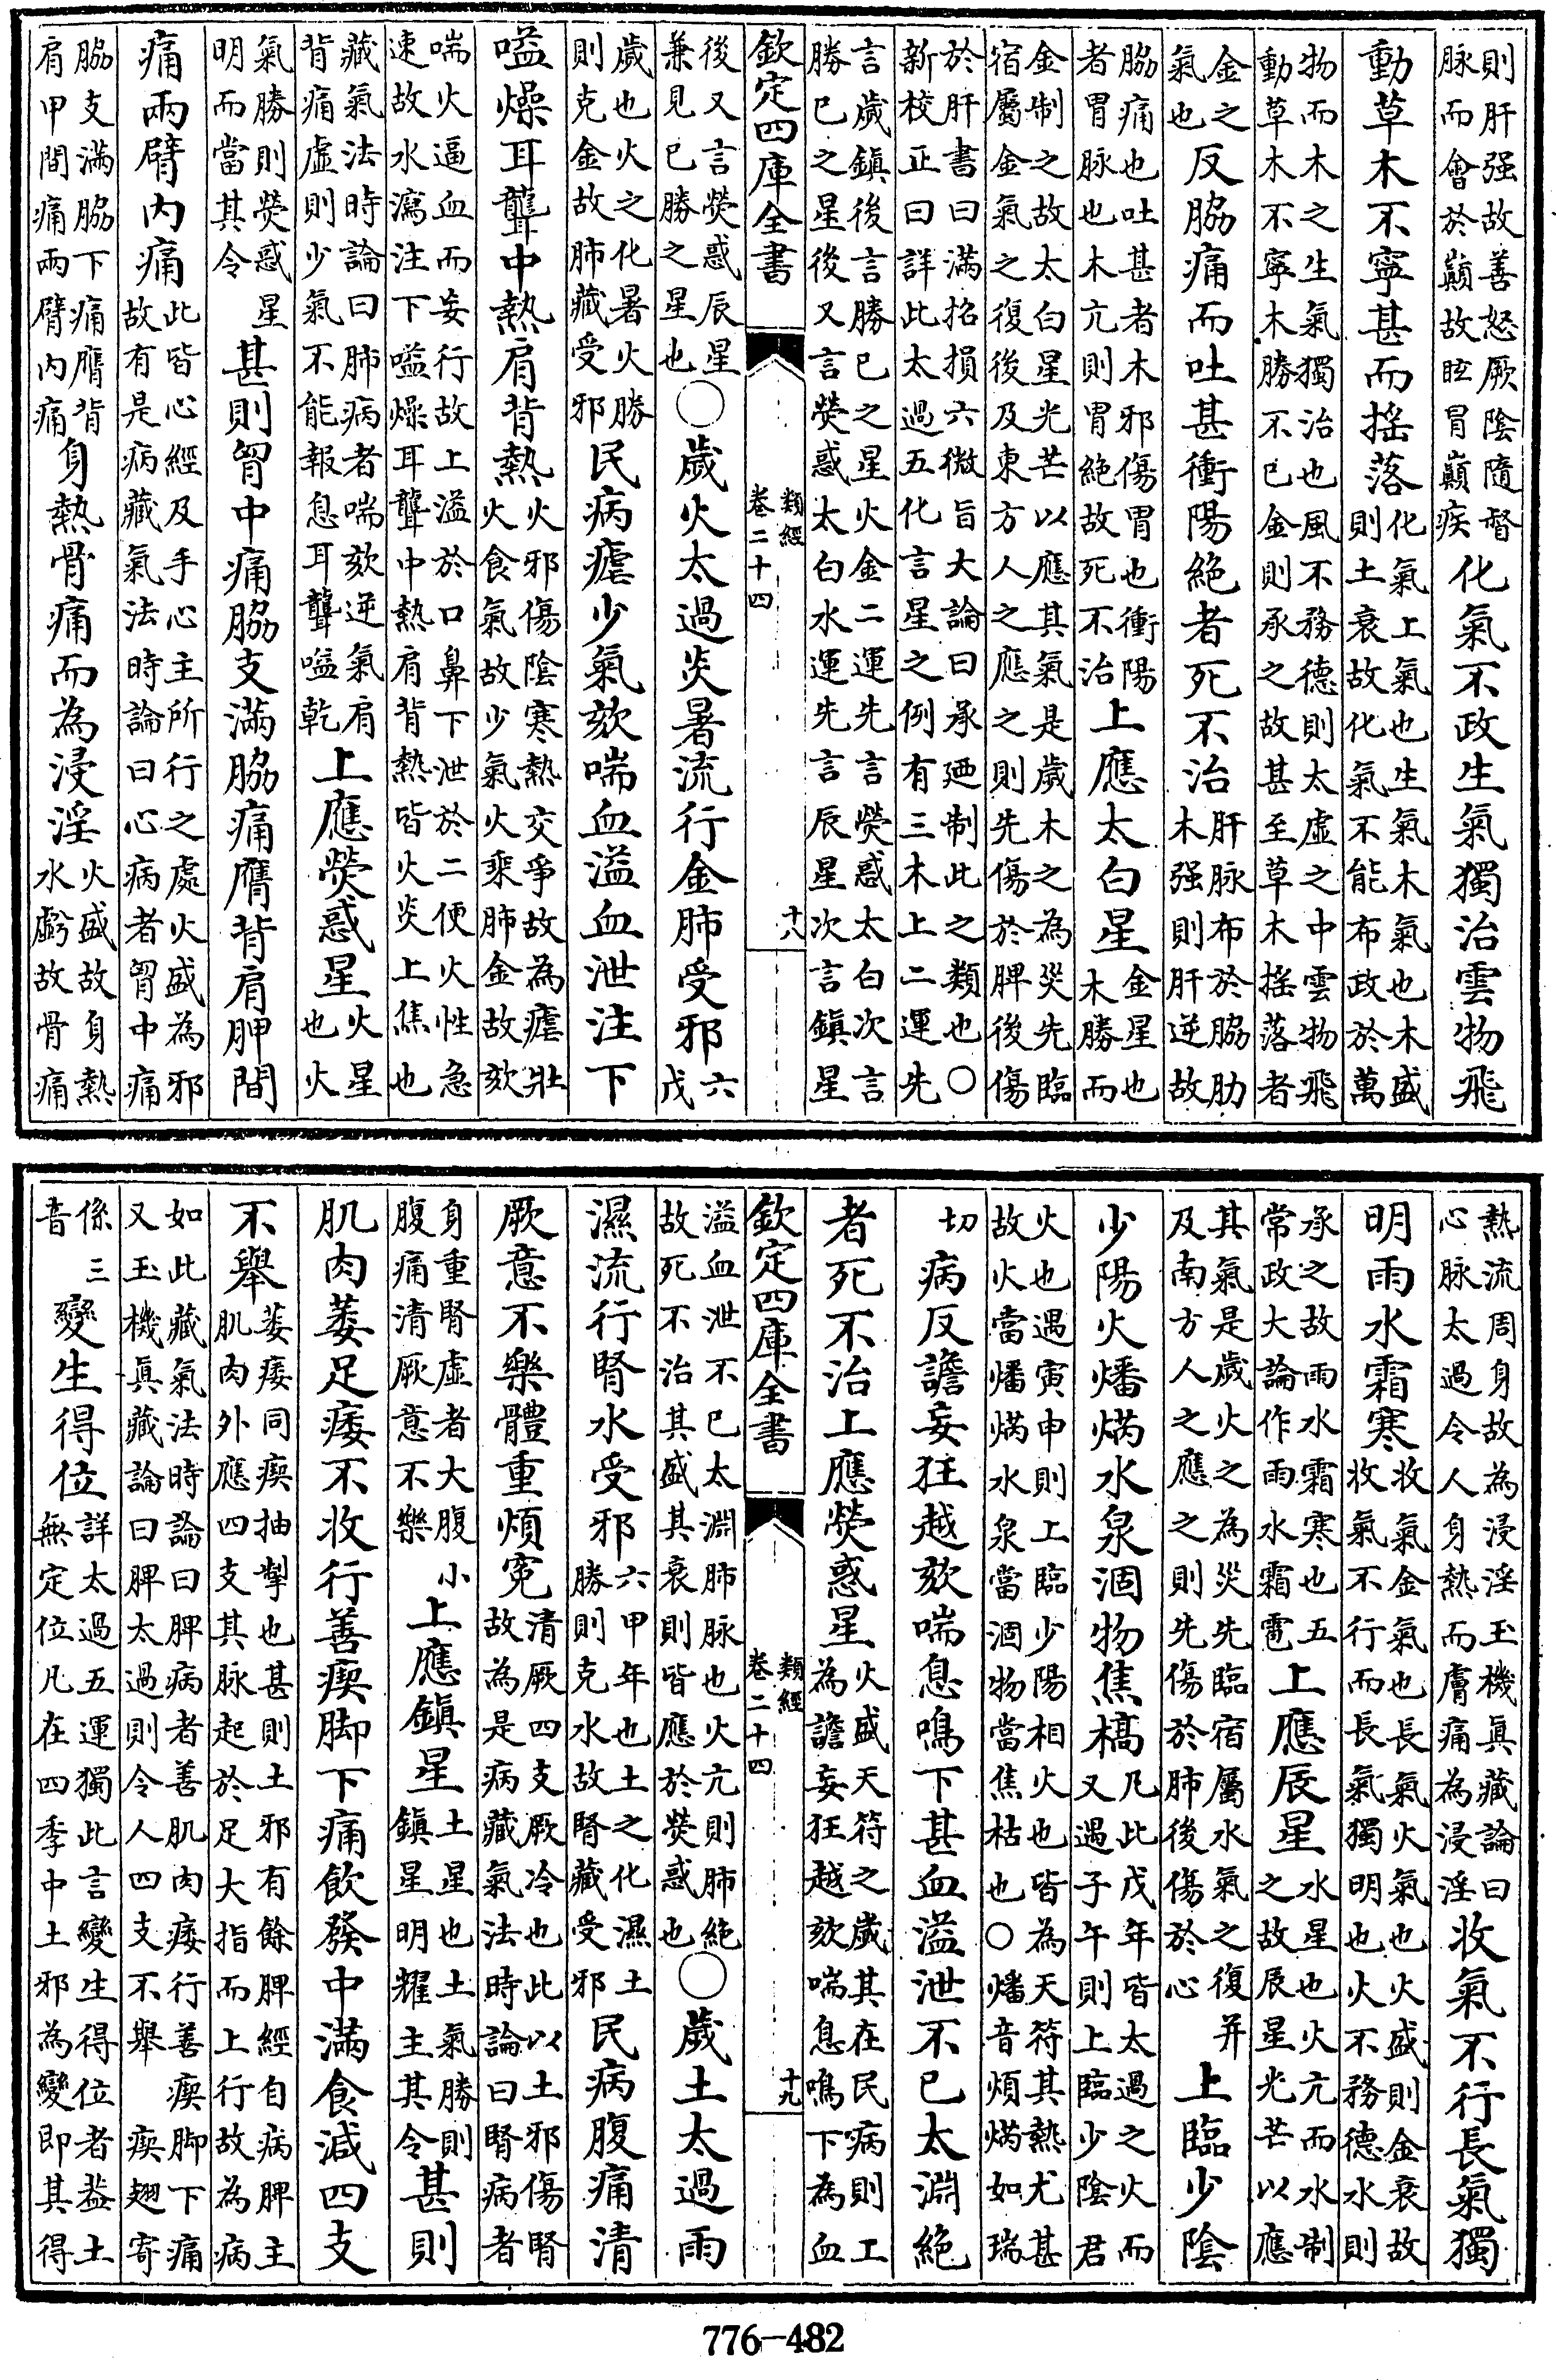 則肝强故善怒厥陰隨督脉而會於巔故眩冒巔疾化氣不政生氣獨治雲物飛
動草木不寧甚而揺落化氣上氣也生氣木氣也木盛則土衰故化氣不能布政於萬
物而木之生氣獨治也風不務德則太虚之中雲物飛動草木不寧木勝不已金則承之故甚至草木揺落者
金之氣也反脇痛而吐甚衝陽絶者死不治肝脉布於脇肋木强則肝逆故
脇痛也吐甚者木邪傷胃也衝陽者胃脉也木亢則胃絶故死不治上應太白星金星也木勝而
金制之故太白星光芒以應其氣是歲木之為災先臨宿屬金氣之復後及東方人之應之則先傷於脾後傷
於肝書曰滿招損六微旨大論曰承廼制此之類也○新校正曰詳此太過五化言星之例有三木上二運先
言歲鎮後言勝已之星火金二運先言熒惑太白次言勝已之星後又言熒惑太白水運先言辰星次言鎮星
欽定四庫全書
類經
卷二十四
十八
後又言熒惑辰星兼見已勝之星也○歲火太過炎暑流行金肺受邪六戊
歲也火之化暑火勝則克金故肺藏受邪民病瘧少氣欬喘血溢血泄注下
嗌燥耳聾中熱肩背熱火邪傷陰寒熱交爭故為瘧壯火食氣故少氣火乘肺金故欬
喘火逼血而妄行故上溢於口鼻下泄於二便火性急速故水瀉注下嗌燥耳聾中熱肩背熱皆火炎上焦也
藏氣法時論曰肺病者喘欬逆氣肩背痛虛則少氣不能報息耳聾嗌乾上應熒惑星火星也火
氣勝則熒惑星明而當其令甚則胷中痛脇支滿脇痛膺背肩胛間
痛兩臂内痛此皆心經及手心主所行之處火盛為邪故有是病藏氣法時論曰心病者胷中痛
脇支滿脇下痛膺背肩甲間痛兩臂内痛身熱骨痛而為浸淫火盛故身熱水虧故骨痛
熱流周身故為浸淫玉機真藏論曰心脉太過令人身熱而膚痛為浸淫收氣不行長氣獨
明雨水霜寒收氣金氣也長氣火氣也火盛則金衰故收氣不行而長氣獨明也火不務德水則
承之故雨水霜寒也五常政大論作雨水霜雹上應辰星水星也火亢而水制之故辰星光芒以應
其氣是歲火之為災先臨宿屬水氣之復并及南方人之應之則先傷於肺後傷於心上臨少陰
少陽火燔焫水泉涸物焦槁凡此戊年皆太過之火而又遇子午則上臨少陰君
火也遇寅申則上臨少陽相火也皆為天符其熱尤甚故火當燔焫水泉當涸物當焦枯也○燔音煩焫如瑞
切病反譫妄狂越欬喘息鳴下甚血溢泄不已太淵絶
者死不治上應熒惑星火盛天符之歲其在民病則工為譫妄狂越欬喘息鳴下為血
溢血泄不已太淵肺脉也火亢則肺絶故死不治其盛其衰則皆應於熒惑也○歲土太過雨
濕流行腎水受邪六甲年也土之化濕土勝則克水故腎藏受邪民病腹痛清
厥意不樂體重煩寃清厥四支厥冷也此以土邪傷腎故為是病藏氣法時論曰腎病者
身重腎虛者大腹小腹痛清厥意不樂上應鎮星土星也土氣勝則鎮星明耀主其令甚則
肌肉萎足痿不收行善瘈脚下痛飲發中滿食減四支
不舉萎痿同瘈抽掣也甚則土邪有餘脾經自病脾主肌肉外應四支其脉起於足大指而上行故為病
如此藏氣法時論曰脾病者善肌肉痿行善瘈脚下痛又玉機真藏論曰脾太過則令人四支不舉瘈翅寄
係三音變生得位詳太過五運獨此言變生得位者葢土無定位凡在四季中土邪為變即其得
欽定四庫全書
類經
卷二十四
十九
776-482